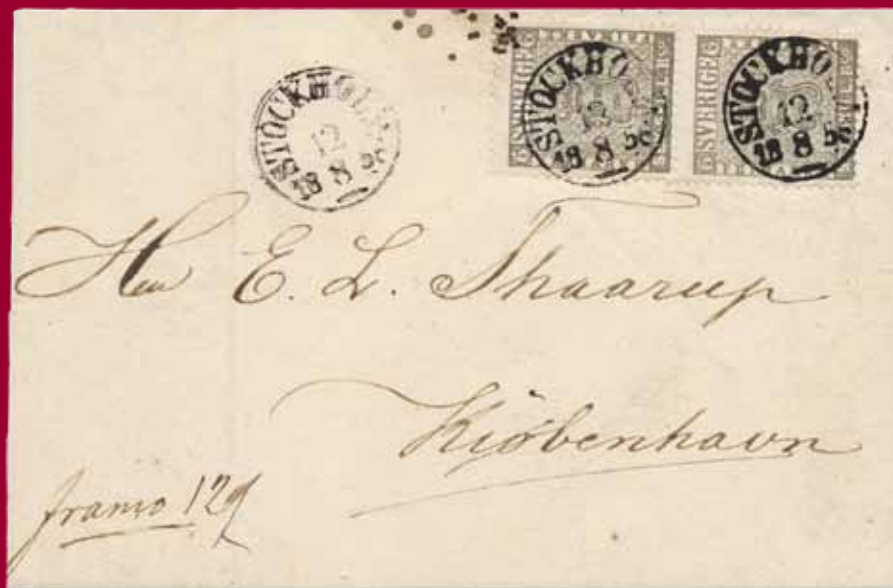 STOCKHOLM
12
18 8 58
6 SVERIGE 6
STOCKHO
12
18 8 58
6 SVERIGE 6
STOCKHO
12
18 8 58
Herr E. L. Thaarup
Kiøbenhavn
franco 12